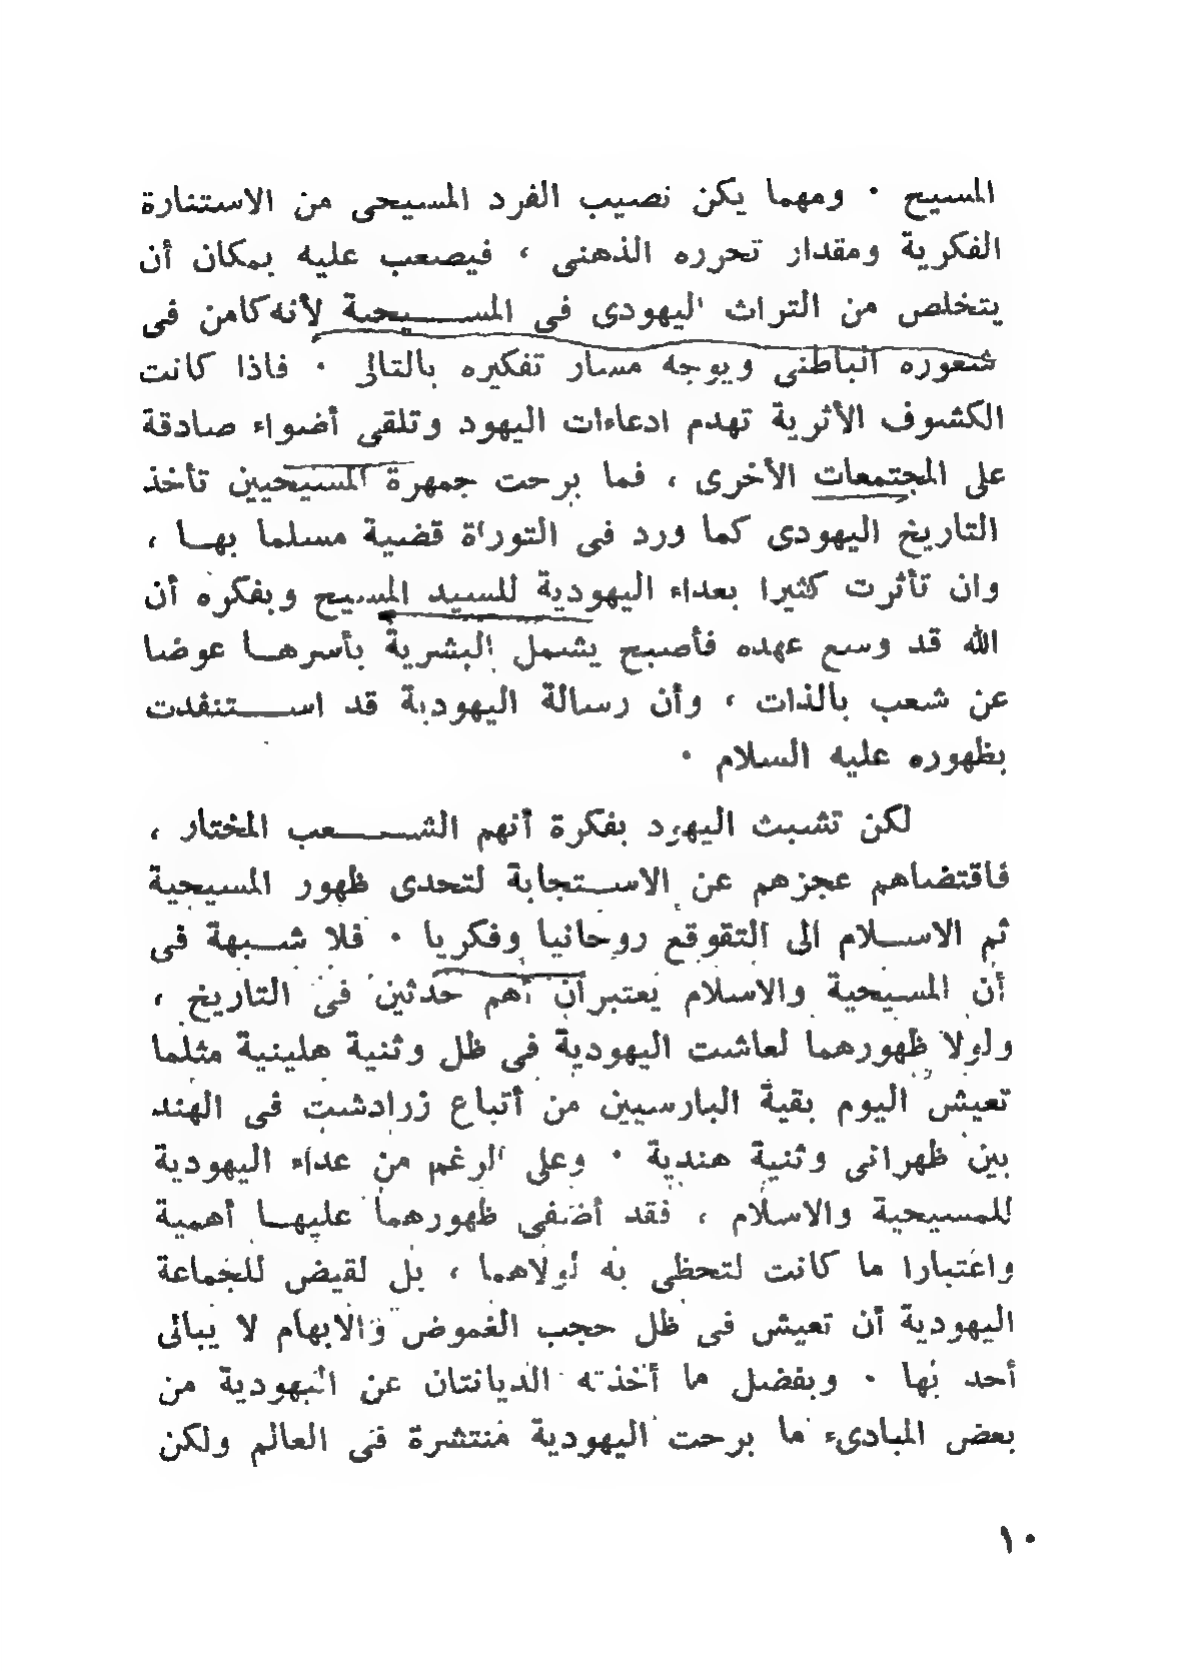 المسيح • ومهما يكن نصيب الفرد المسيحى من الاستنارة
الفكرية ومقدار تحرره الذهنى ، فيصعب عليه بمكان أن
يتخلص من التراث اليهودى فى المسيحية لأنه كامن فى
شعوره الباطنى ويوجه مسار تفكيره بالتالى • فاذا كانت
الكشوف الأثرية تهدم ادعاءات اليهود وتلقى أضواء صادقة
على المجتمعات الأخرى ، فما برحت جمهرة المسيحيين تأخذ
التاريخ اليهودى كما ورد فى التوراة قضية مسلما بها ،
وان تأثرت كثيرا بعداء اليهودية للسيد المسيح وبفكره أن
الله قد وسع عهده فأصبح يشمل البشرية بأسرها عوضا
عن شعب بالذات ، وأن رسالة اليهودية قد استنفدت
بظهوره عليه السلام •
لكن تشبث اليهود بفكرة أنهم الشعب المختار ،
فاقتضاهم عجزهم عن الاستجابة لتحدى ظهور المسيحية
ثم الاسلام الى التقوقع روحانيا وفكريا • فلا شبهة فى
أن المسيحية والاسلام يعتبران أهم حدثين فى التاريخ ،
ولولا ظهورهما لعاشت اليهودية فى ظل وثنية هلينية مثلما
تعيش اليوم بقية البارسيين من أتباع زرادشت فى الهند
بين ظهرانى وثنية هندية • وعلى الرغم من عداء اليهودية
للمسيحية والاسلام ، فقد أضفى ظهورهما عليها أهمية
واعتبارا ما كانت لتحظى به لولاهما ، بل لقيض للجماعة
اليهودية أن تعيش فى ظل حجب الغموض والابهام لا يبالى
أحد بها • وبفضل ما أخذته الديانتان عن اليهودية من
بعض المبادىء ما برحت اليهودية منتشرة فى العالم ولكن
١٠